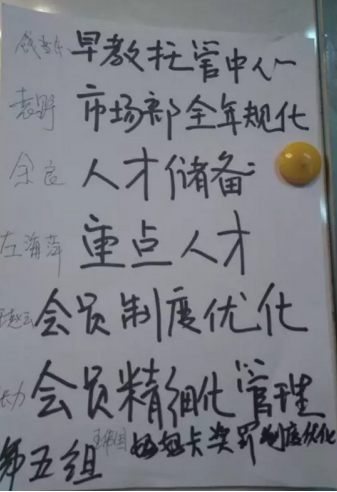 早教托管中心
袁野 市场部全年规化
余良 人才储备
左海萍 重点人才
赵云 会员制度优化
会员精细化管理
第五组 卡奖罚制度优化